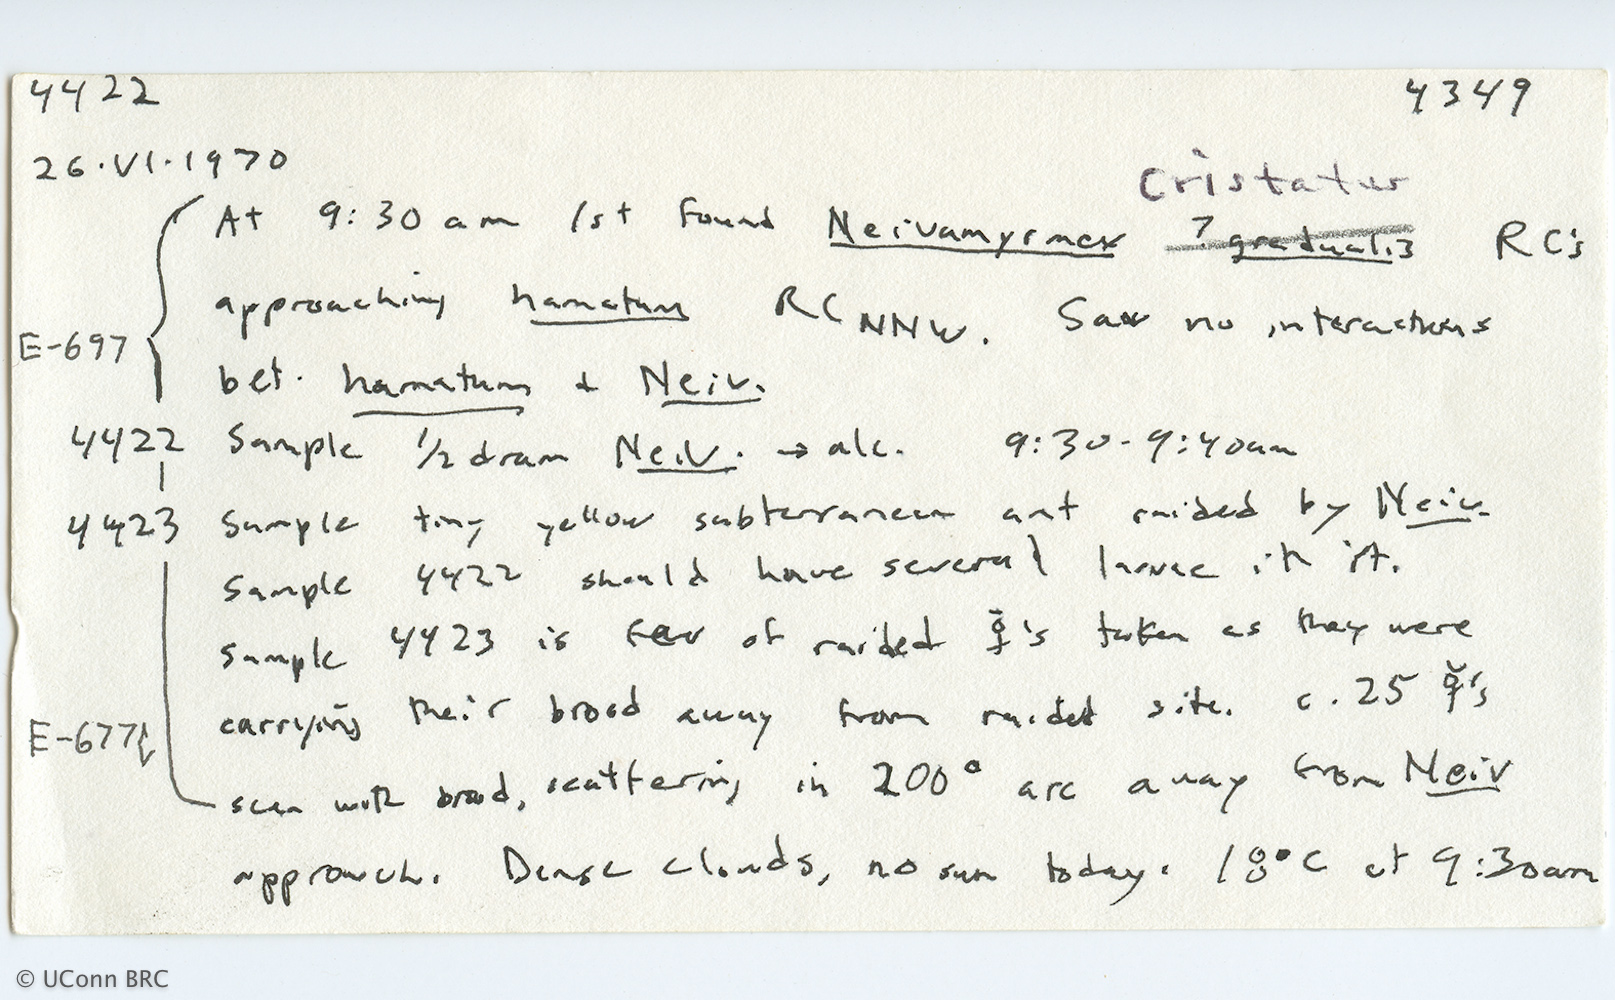 4422 4349
26·VI·1970
cristatus
At 9:30 am 1st found Neivamyrmex ? gradualis RC's
approaching hamatum RC NNW. Saw no interactions
E-697
bet. hamatum + Neiv.
4422 Sample 1/2 dram Neiv. → alc. 9:30-9:40am
4423 Sample tiny yellow subterranean ant raided by Neiv.
Sample 4422 should have several larvae in it.
Sample 4423 is few of raided ☿'s taken as they were
carrying their brood away from raided site. c. 25 ☿'s
E-677
seen with brood, scattering in 200° arc away from Neiv
approach. Dense clouds, no sun today. 18°C at 9:30am
© UConn BRC